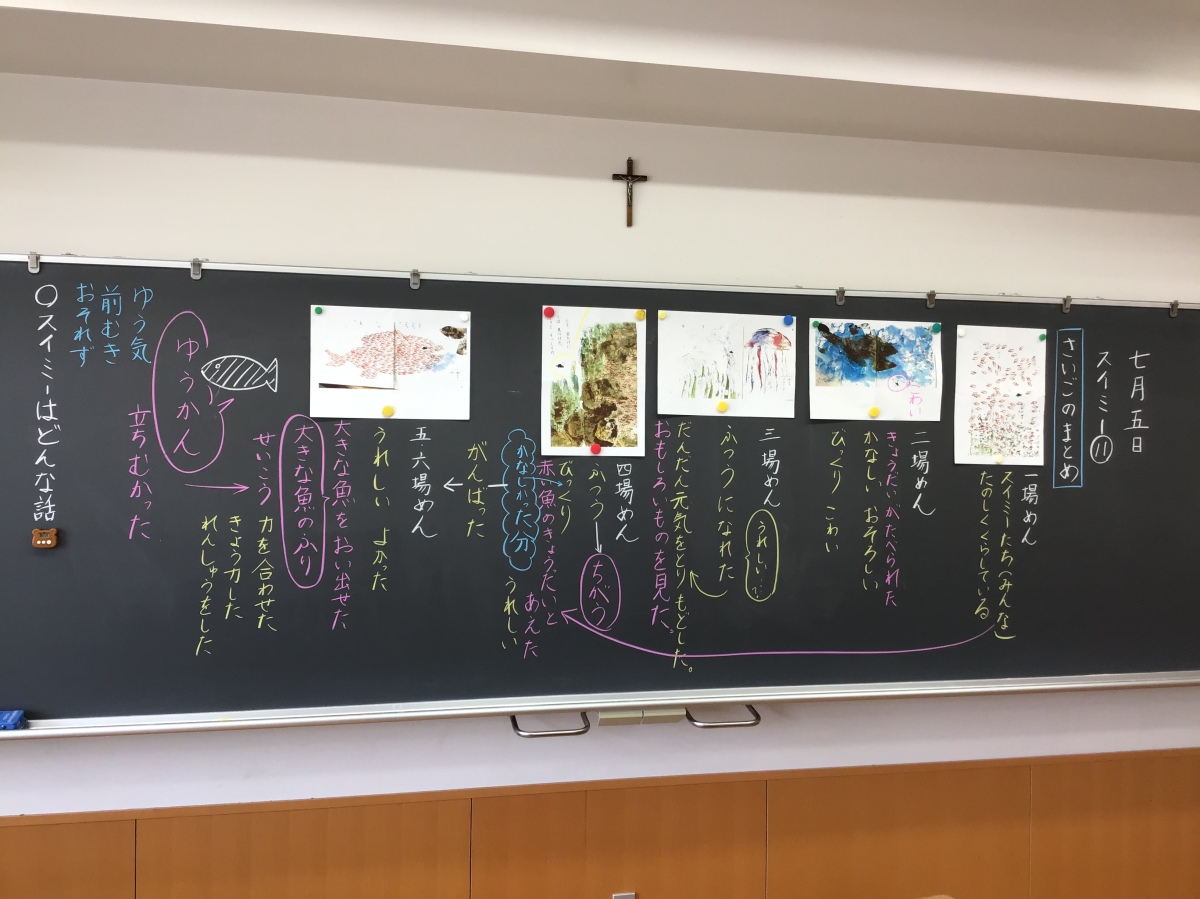 七月五日
スイミー⑪
さいごのまとめ
一場めん
スイミーたち(みんな)
たのしくくらしている
二場めん
きょうだいがたべられた
かなしい おそろしい
びっくり こわい
こわい
三場めん
うれしい…だ
ふつうになれた
だんだん元気をとりもどした。
おもしろいものを見た。
四場めん
ふつう
ちがう
びっくり
赤い魚のきょうだいと あえた
かなしかった分 うれしい
がんばった
五六場めん
うれしい よかった
大きな魚をおい出せた
大きな魚のふり
せいこう 力を合わせた
きょう力した
れんしゅうをした
ゆうかん
立ちむかった
ゆう気
前むき
おそれず
○スイミーはどんな話